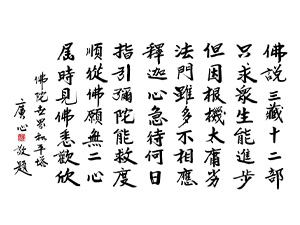 佛說三藏十二部
只求眾生能進步
但因根機太庸劣
法門雖多不相應
釋迦心急待何日
指引彌陀能救度
順從佛願無二心
屆時見佛悉歡欣
佛院世界和平塔
廣心敬題